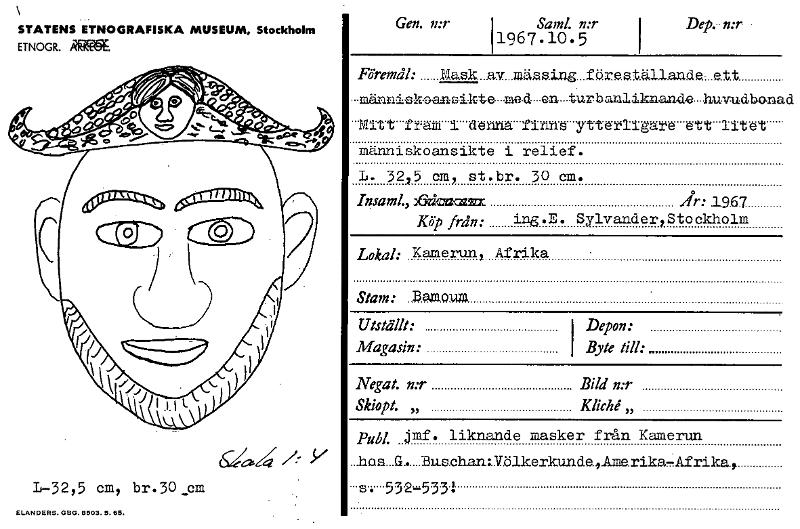 STATENS ETNOGRAFISKA MUSEUM, Stockholm
ETNOGR.
Skala 1:4
L-32,5 cm, br.30 cm
ELANDERS, GBG. 8503. 5. 65.
Gen. n:r Saml. n:r Dep. n:r
1967.10.5
Föremål: Mask av mässing föreställande ett
människoansikte med en turbanliknande huvudbonad
Mitt fram i denna finns ytterligare ett litet
människoansikte i relief.
L. 32,5 cm, st.br. 30 cm.
Insaml., År: 1967
Köp från: ing.E. Sylvander,Stockholm
Lokal: Kamerun, Afrika
Stam: Bamoum
Utställt: Depon:
Magasin: Byte till:
Negat. n:r Bild n:r
Skiopt. „ Kliché „
Publ. jmf. liknande masker från Kamerun
hos G. Buschan:Völkerkunde,Amerika-Afrika,
s. 532-533!